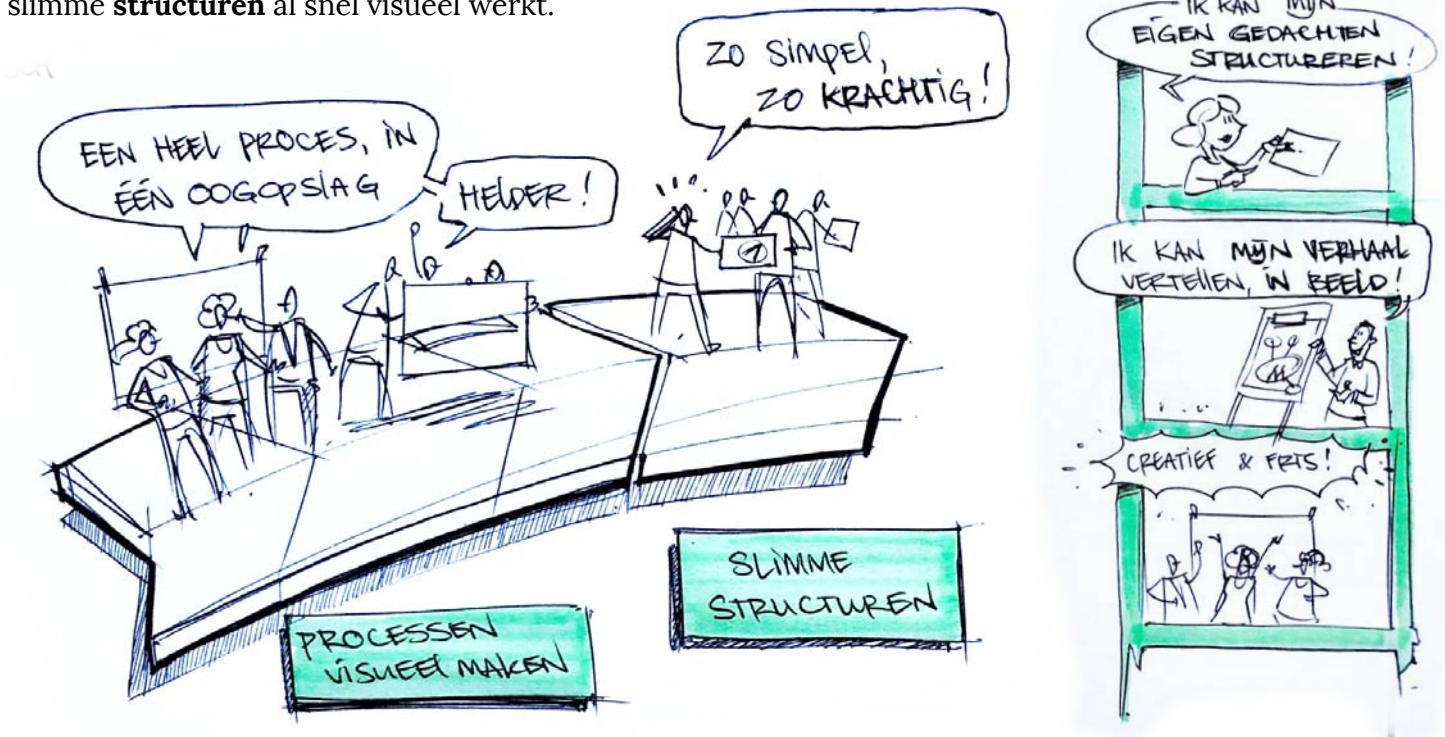 slimme structuren al snel visueel werkt.
EEN HEEL PROCES, IN
ÉÉN OOGOPSLAG
HELDER!
ZO SIMPEL,
ZO KRACHTIG!
1
PROCESSEN
VISUEEL MAKEN
SLIMME
STRUCTUREN
IK KAN MIJN
EIGEN GEDACHTEN
STRUCTUREREN!
IK KAN MIJN VERHAAL
VERTELLEN, IN BEELD!
CREATIEF & FRIS!